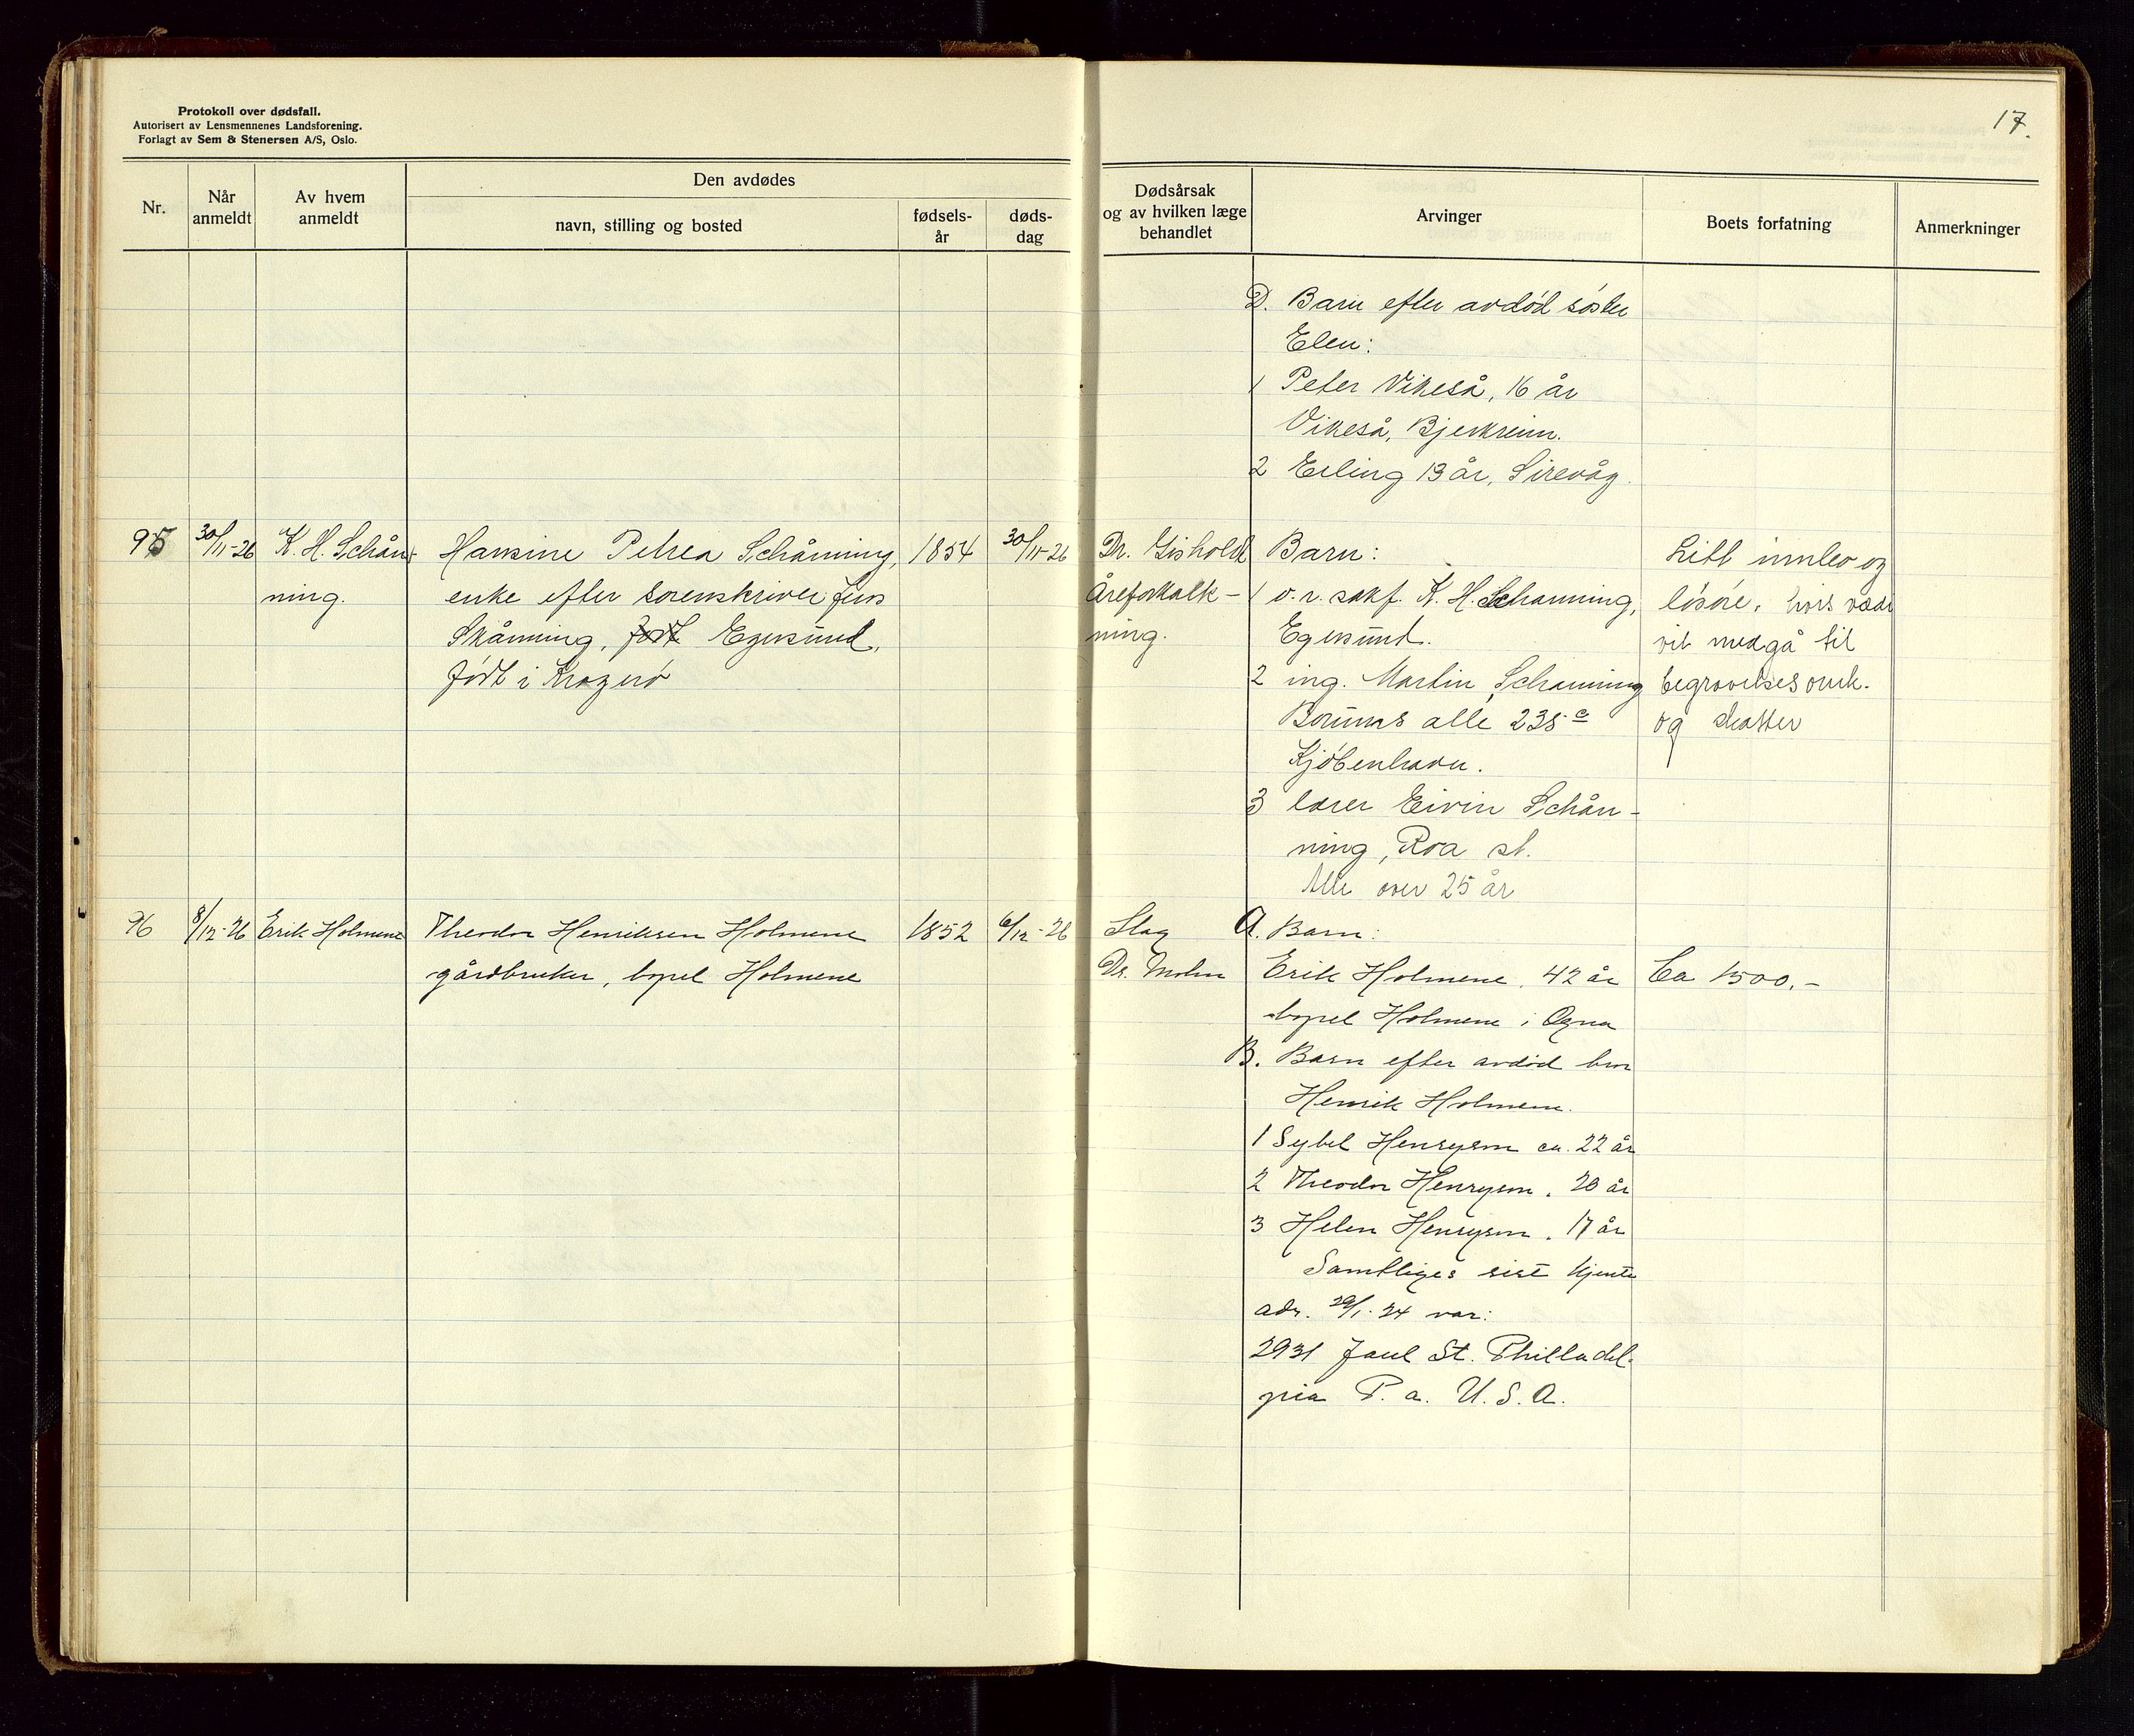 Protokoll over dødsfall.
Autorisert av Lensmennenes Landsforening.
Forlagt av Sem & Stenersen A/S, Oslo.
17.
Nr.
Når anmeldt
Av hvem anmeldt
Den avdødes
navn, stilling og bosted
fødsels-år
døds-dag
Dødsårsak og av hvilken læge behandlet
Arvinger
Boets forfatning
Anmerkninger
D. Barn efter avdød søster
Elen:
1 Peter Vikeså, 16 år
Vikeså, Bjerkreim.
2 Erling 13 år, Sirevåg.
95
30/11-26
K. H. Schån-
ning.
Hansine Petrea Schånning,
enke efter sorenskriver Jens
Skånning, født Egersund,
født i Kragerø
1854
30/11-26
Dr. Gisholdt
Åreforkalk-
ning.
Barn:
1 o.r. sakf. K. H. Schanning,
Egersund.
2 ing. Martin Schanning
Borums alle 235 c
Kjøbenhavn.
3 lærer Eivin Schån-
ning, Roa st.
Alle over 25 år
Litt innbo og
løsøre, hvis værdi
vil medgå til
begravelsesomk.
og skatter
96
8/12-26
Erik Holmene
Theodor Henriksen Holmene
gårdbruker, bopel Holmene
1852
6/12-26
Slag
Dr. Mohn
A. Barn:
Erik Holmene, 42 år
bopel Holmene i Ogna
B. Barn efter avdød bror
Henrik Holmene.
1 Sybel Henryson ca. 22 år
2 Theodor Henryson, 20 år
3 Helen Henryson, 17 år
Samtliges sist kjente
adr. 29/1-24 var:
2931 Jaul St. Philladel-
pia P. a. U. S. A.
Ca 1500,-